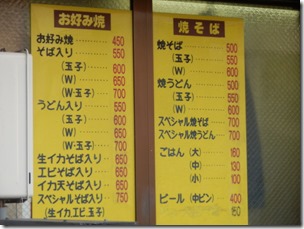 お好み焼
お好み焼 ……… 450
そば入り ……… 550
(玉子) ……… 600
(W) ……… 650
(W·玉子) …… 700
うどん入り …… 550
(玉子) ……… 600
(W) ……… 650
(W·玉子) …… 700
生イカそば入り … 650
エビそば入り …… 650
イカ天そば入り … 650
スペシャルそば入り … 750
(生イカ.エビ.玉子)
焼そば
焼そば ……… 500
(玉子) ……… 550
(W) ……… 600
焼うどん ……… 500
(玉子) ……… 550
(W) ……… 600
スペシャル焼そば … 700
スペシャル焼うどん … 700
ごはん (大) …… 160
(中) …… 130
(小) …… 100
ビール (中ビン) … 400